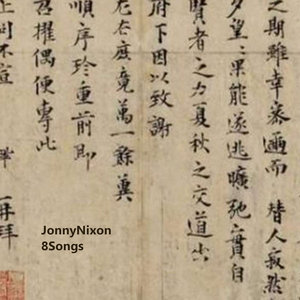 之期雖幸密邇而 替人寂然
夕望〻果能遂逃曠弛實自
賢者之力夏秋之交道出
府下因以致謝
左右庶竟萬一餘冀
順序珍重前即
召擢偶便專此
上問不宣 鞏 再拜
JonnyNixon
8Songs